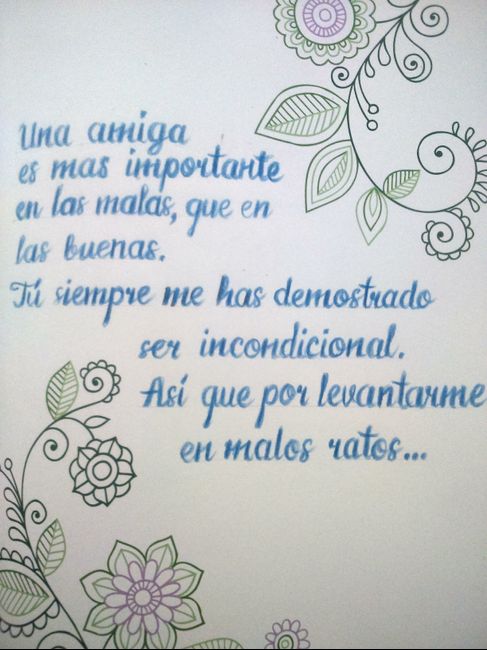 Una amiga
es mas importante
en las malas, que en
las buenas.
Tú siempre me has demostrado
ser incondicional.
Así que por levantarme
en malos ratos...